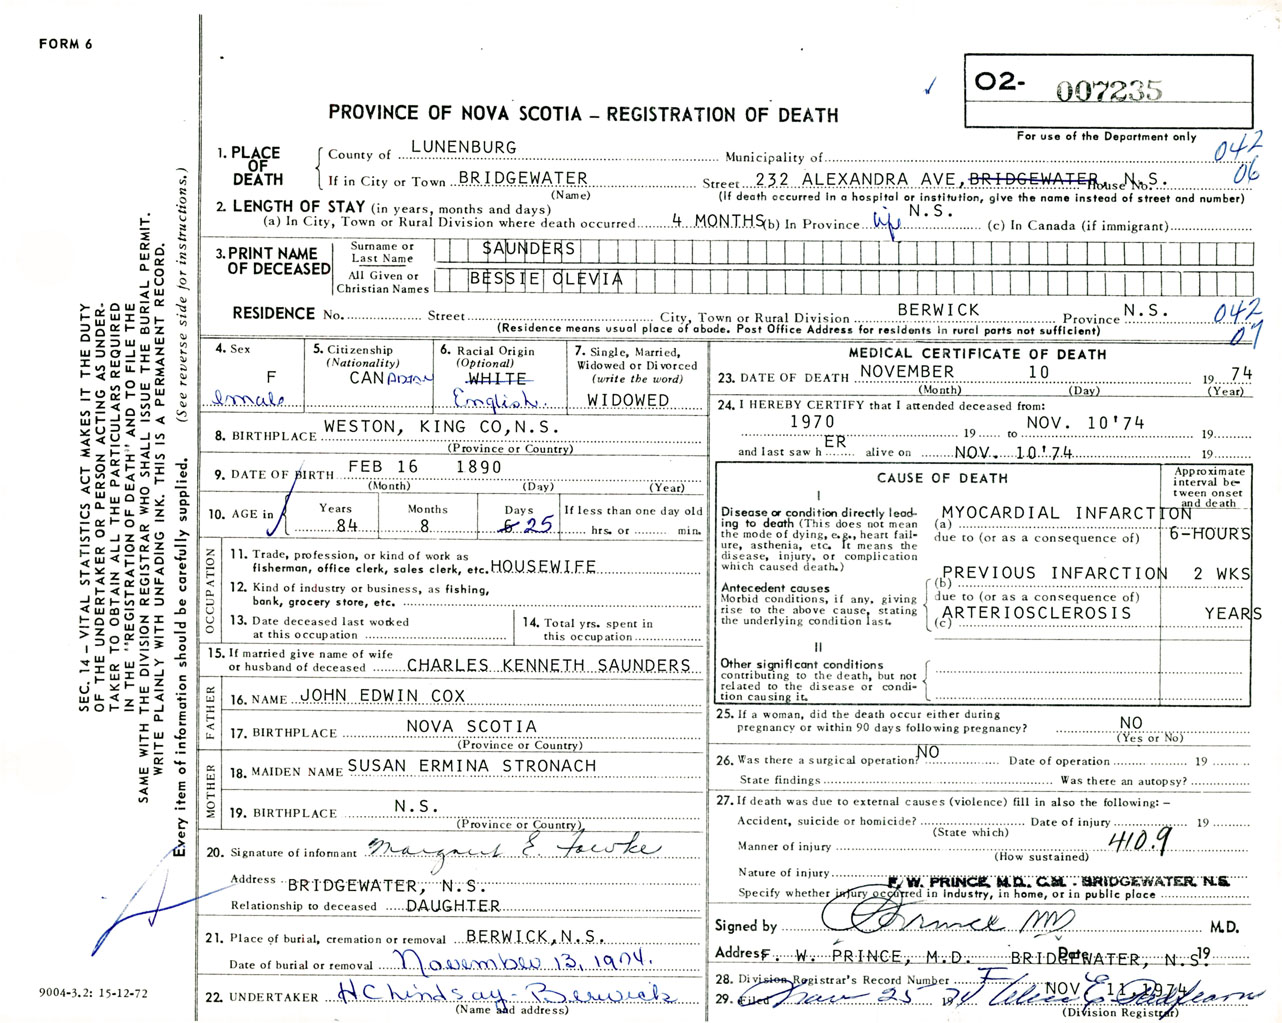 FORM 6
O2- 007235
PROVINCE OF NOVA SCOTIA – REGISTRATION OF DEATH
For use of the Department only
042
06
1. PLACE OF DEATH
County of LUNENBURG Municipality of
If in City or Town BRIDGEWATER Street 232 ALEXANDRA AVE, BRIDGEWATER, House No. N.S.
(Name) (If death occurred in a hospital or institution, give the name instead of street and number)
2. LENGTH OF STAY (in years, months and days)
(a) In City, Town or Rural Division where death occurred 4 MONTHS (b) In Province life N.S. (c) In Canada (if immigrant)
3. PRINT NAME OF DECEASED
Surname or Last Name SAUNDERS
All Given or Christian Names BESSIE OLEVIA
RESIDENCE No. Street City, Town or Rural Division BERWICK Province N.S.
(Residence means usual place of abode. Post Office Address for residents in rural parts not sufficient)
042
07
4. Sex
F
emale
5. Citizenship
(Nationality)
CANADIAN
6. Racial Origin
(Optional)
WHITE
English
7. Single, Married, Widowed or Divorced
(write the word)
WIDOWED
8. BIRTHPLACE WESTON, KING CO, N.S.
(Province or Country)
9. DATE OF BIRTH FEB 16 1890
(Month) (Day) (Year)
10. AGE in
Years Months Days If less than one day old
84 8 25 hrs. or min.
OCCUPATION
11. Trade, profession, or kind of work as
fisherman, office clerk, sales clerk, etc. HOUSEWIFE
12. Kind of industry or business, as fishing,
bank, grocery store, etc.
13. Date deceased last worked
at this occupation
14. Total yrs. spent in
this occupation
15. If married give name of wife
or husband of deceased CHARLES KENNETH SAUNDERS
FATHER
16. NAME JOHN EDWIN COX
17. BIRTHPLACE NOVA SCOTIA
(Province or Country)
MOTHER
18. MAIDEN NAME SUSAN ERMINA STRONACH
19. BIRTHPLACE N.S.
(Province or Country)
20. Signature of informant Margaret E. Fowke
Address BRIDGEWATER, N.S.
Relationship to deceased DAUGHTER
21. Place of burial, cremation or removal BERWICK, N.S.
Date of burial or removal November 13, 1974.
22. UNDERTAKER H C Lindsay - Berwick
(Name and address)
MEDICAL CERTIFICATE OF DEATH
23. DATE OF DEATH NOVEMBER 10 19 74
(Month) (Day) (Year)
24. I HEREBY CERTIFY that I attended deceased from:
1970 19 to NOV. 10'74 19
and last saw h ER alive on NOV. 10'74 19
CAUSE OF DEATH
Approximate interval between onset and death
I
Disease or condition directly leading to death (This does not mean the mode of dying, e.g., heart failure, asthenia, etc. It means the disease, injury, or complication which caused death.)
(a) MYOCARDIAL INFARCTION
due to (or as a consequence of) 6-HOURS
Antecedent causes
Morbid conditions, if any, giving rise to the above cause, stating the underlying condition last.
(b) PREVIOUS INFARCTION 2 WKS
due to (or as a consequence of)
(c) ARTERIOSCLEROSIS YEARS
II
Other significant conditions
contributing to the death, but not related to the disease or condition causing it.
25. If a woman, did the death occur either during
pregnancy or within 90 days following pregnancy? NO
(Yes or No)
26. Was there a surgical operation? NO Date of operation 19
State findings Was there an autopsy?
27. If death was due to external causes (violence) fill in also the following: –
Accident, suicide or homicide? Date of injury 19
(State which)
Manner of injury 410.9
(How sustained)
Nature of injury
F. W. PRINCE, M.D., C.M. - BRIDGEWATER, N.S.
Specify whether injury occurred in Industry, in home, or in public place
Signed by Prince MD M.D.
Address F. W. PRINCE, M.D. BRIDGEWATER, N.S. Date 19
28. Division Registrar's Record Number
NOV 11, 1974
29. Filed Nov 25 19 74
(Division Registrar)
SEC. 14 – VITAL STATISTICS ACT MAKES IT THE DUTY
OF THE UNDERTAKER OR PERSON ACTING AS UNDER-
TAKER TO OBTAIN ALL THE PARTICULARS REQUIRED
IN THE "REGISTRATION OF DEATH" AND TO FILE THE
SAME WITH THE DIVISION REGISTRAR WHO SHALL ISSUE THE BURIAL PERMIT.
WRITE PLAINLY WITH UNFADING INK. THIS IS A PERMANENT RECORD.
Every item of information should be carefully supplied. (See reverse side for instructions.)
9004-3.2: 15-12-72